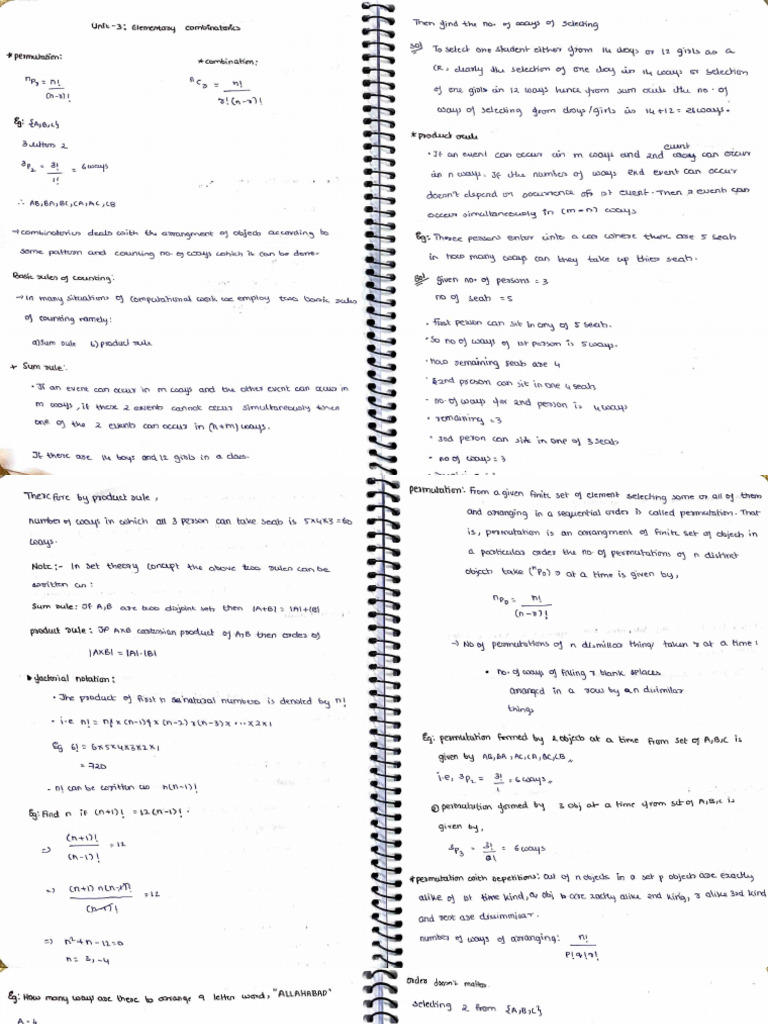 Unit-3: Elementary combinatorics
* permutation:
nPr = n!
(n-r)!
* combination:
nCr = n!
r!(n-r)!
Eg: {A,B,C}
3 letters 2
3P2 = 3! = 6 ways
1!
∴ AB, BA, BC, CA, AC, CB
→ combinatorics deals with the arrangment of objects according to
some pattern and counting no. of ways which it can be done.
Basic rules of counting:
→ In many situations of computational work we employ two basic rules
of counting namely:
a) Sum rule b) product rule
+ Sum rule:
• If an event can occur in m ways and the other event can occur in
m ways, if these 2 events cannot occur simultaneously then
one of the 2 events can occur in (n+m) ways.
If there are 14 boys and 12 girls in a class.
Then find the no. of ways of selecting
Sol To select one student either from 14 boys or 12 girls as a
CR, clearly the selection of one boy in 14 ways or selection
of one girls in 12 ways hence from sum rule the no. of
ways of selecting from boys/girls is 14+12 = 26 ways.
* product rule
event
• If an event can occur in m ways and 2nd can occur
in n ways. If the number of ways 2nd event can occur
doesn't depend on occurrence of 1st event. Then 2 event can
occur simultaneously in (m×n) ways
Eg: Three persons enter into a car where there are 5 seats
in how many ways can they take up their seats.
Sol given no. of persons = 3
no of seats = 5
• first person can sit in any of 5 seats.
• So no of ways of 1st person is 5 ways.
• now remaining seats are 4
• 2nd person can sit in one 4 seats
• no. of ways for 2nd person is 4 ways
• remaining = 3
• 3rd person can sit in one of 3 seats
• no of ways = 3
Therefore by product rule,
number of ways in which all 3 person can take seats is 5×4×3 = 60
ways.
Note:- In set theory concept the above two rules can be
written as:
Sum rule: If A,B are two disjoint sets then |A+B| = |A|+|B|
product rule: If A×B cartesian product of A,B then order of
|A×B| = |A|·|B|
factorial notation:
• The product of first n natural numbers is denoted by n!
• i.e n! = n × (n-1) × (n-2) × (n-3) × ... × 2 × 1
Eg 6! = 6×5×4×3×2×1
= 720
- n! can be written as n(n-1)!
Eg: Find n if (n+1)! = 12(n-1)!
=> (n+1)! = 12
(n-1)!
=> (n+1) n(n-1)! = 12
(n-1)!
=> n²+n-12=0
n = 3, -4
Eg: How many ways are there to arrange 9 letter word, "ALLAHABAD"
A = 4
permutation: From a given finite set of element selecting some or all of them
and arranging in a sequential order is called permutation. That
is, permutation is an arrangment of finite set of object in
a particular order the no of permutations of n distinct
objects take (nPr) r at a time is given by,
nPr = n!
(n-r)!
→ No of permutations of n dismiller things taken r at a time:
• no. of ways of filling r blank splaces
arranged in a row by n disimilar
things
Eg: permutation formed by 2 objects at a time from set of A,B,C is
given by AB, BA, AC, CA, BC, CB
i.e, 3P2 = 3! = 6 ways
1
permutation formed by 3 obj at a time from set of A,B,C is
given by,
3P3 = 3! = 6 ways
0!
* permutation with repetitions: out of n objects in a set p objects are exactly
alike of 1st kind, q obj are exactly alike 2nd king, r alike 3rd kind
and rest are
number of ways of arranging: n!
p!q!r!
order doesn't matter.
selecting 2 from {A,B,C}